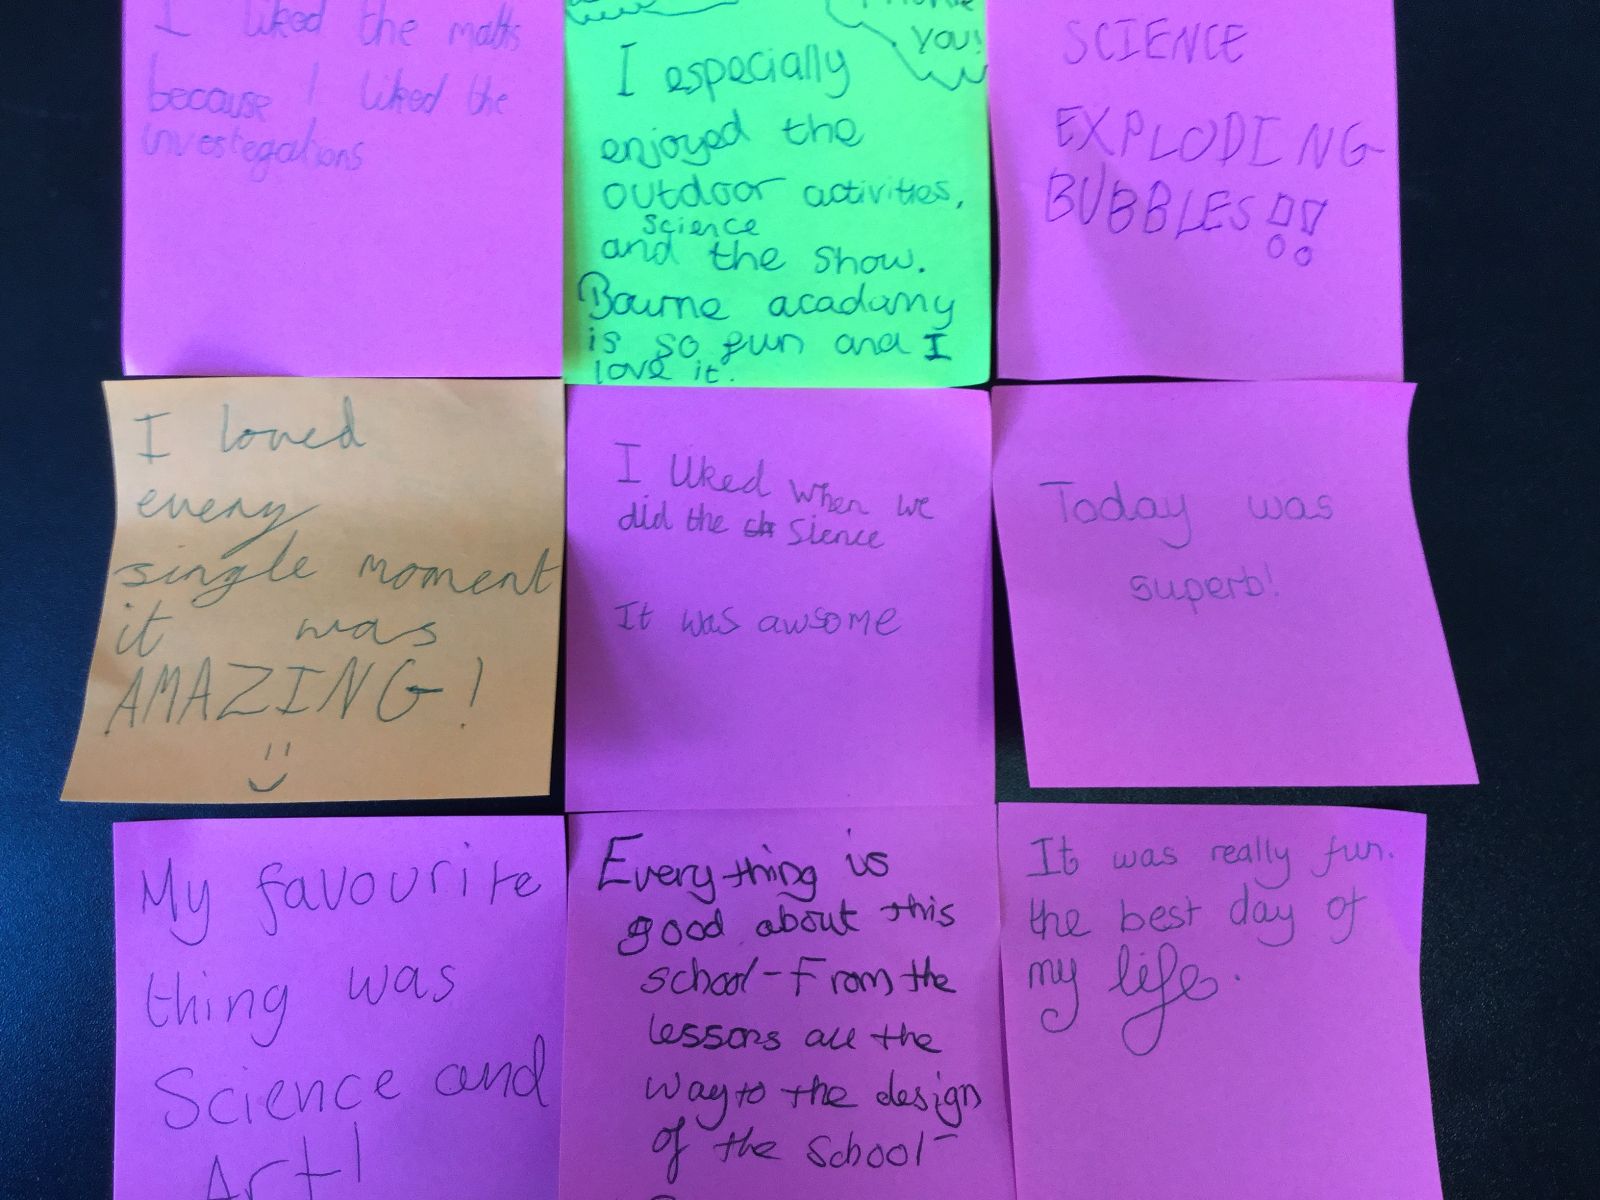 I liked the maths
because I liked the
investegations
YOU!
I especially
enjoyed the
outdoor activities,
science
and the show.
Bourne acadamy
is so fun and I
love it.
SCIENCE
EXPLODING
BUBBLES!!
I loved
every
single moment
it was
AMAZING!
I liked when we
did the Sience
It was awsome
Today was
superb!
My favourite
thing was
Science and
Art!
Everything is
good about this
school - From the
lessons all the
way to the design
of the School -
It was really fun.
the best day of
my life.